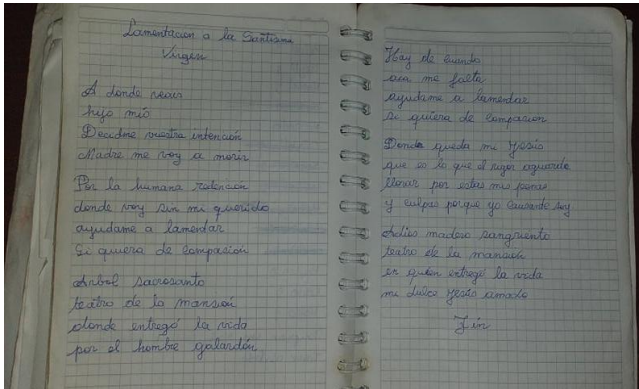 Lamentacion a la Santisima
Virgen
A donde vais
hijo mio
Decidme vuestra intención
Madre me voy a morir
Por la humana redencion
donde voy sin mi querido
ayudame a lamentar
Si quiera de compasión
Arbol sacrosanto
teatro de la mansión
donde entregó la vida
por el hombre galardón
Hay de cuando
aca me falta
ayudame a lamentar
si quiera de compasion
Donde queda mi Jesús
que es lo que el rigor aguarda
llorar por estas mis penas
y culpas porque yo causante soy
Adios madero sangriento
teatro de la mansión
en quien entregó la vida
mi dulce Jesús amado
Fin